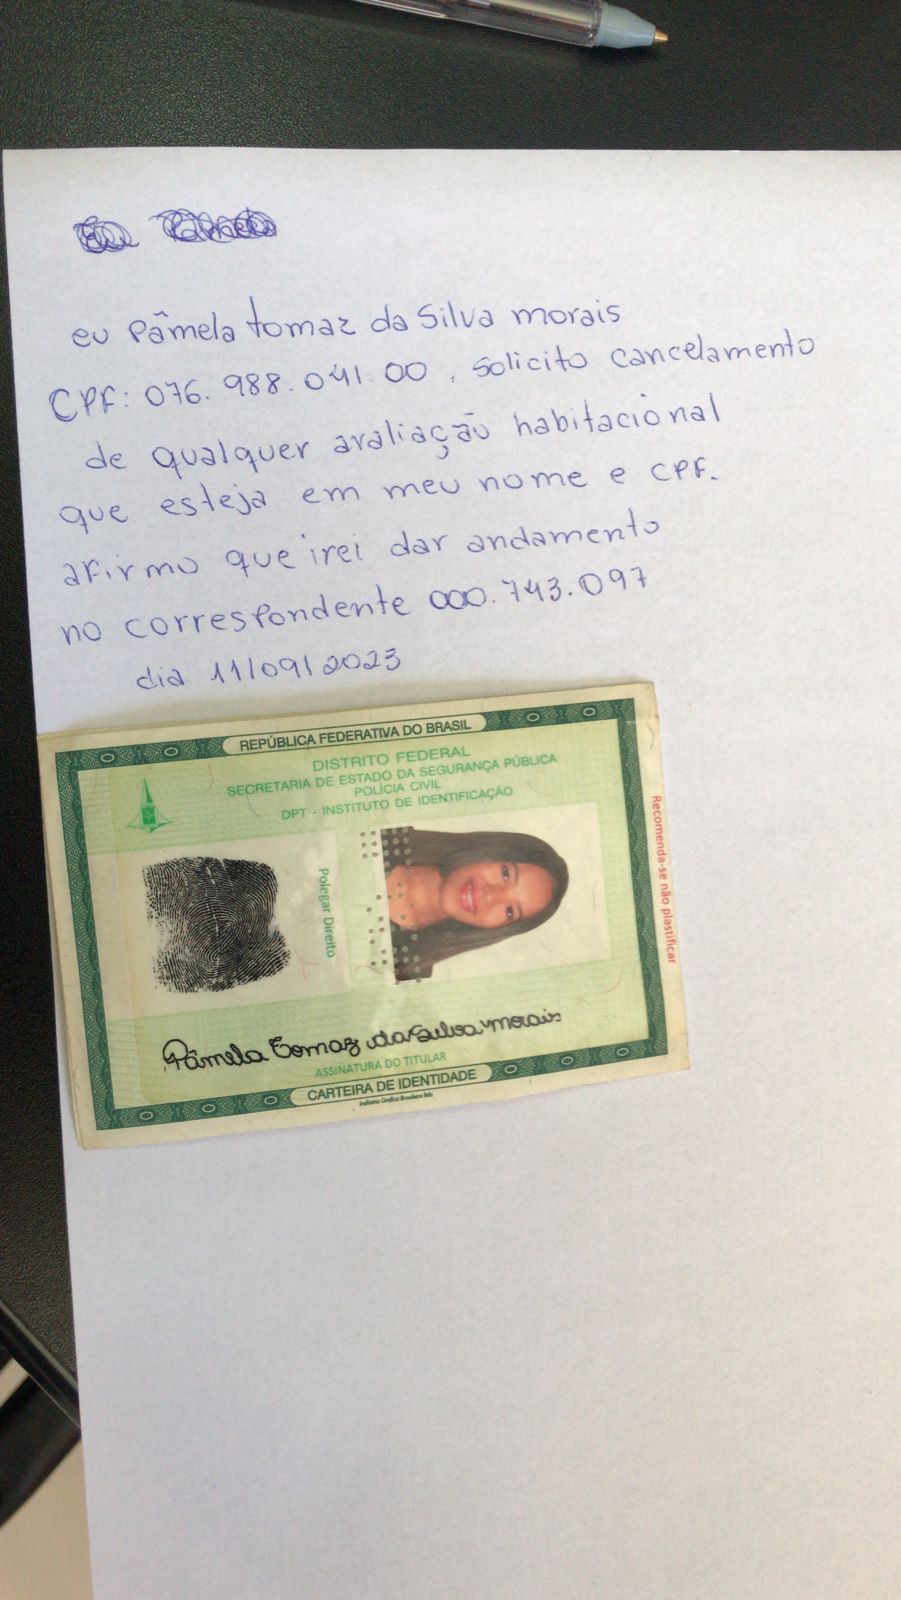 eu Pâmela tomaz da Silva morais
CPF: 076.988.041.00, solicito cancelamento
de qualquer avaliação habitacional
que esteja em meu nome e CPF.
afirmo que irei dar andamento
no correspondente 000.743.097
dia 11/09/2023
REPÚBLICA FEDERATIVA DO BRASIL
DISTRITO FEDERAL
SECRETARIA DE ESTADO DA SEGURANÇA PÚBLICA
POLÍCIA CIVIL
DPT - INSTITUTO DE IDENTIFICAÇÃO
Polegar Direito
Recomenda-se não plastificar
Pâmela Tomaz da Silva Morais
ASSINATURA DO TITULAR
CARTEIRA DE IDENTIDADE
Indústria Gráfica Brasileira ltda